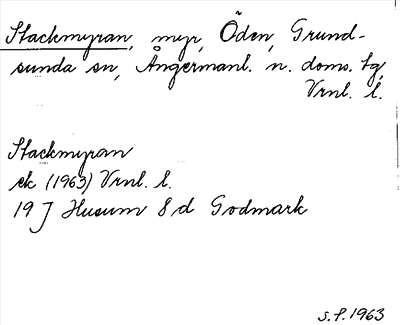 Stackmyran, myr, Öden, Grund-
sunda sn, Ångermanl. n. doms. tg,
Vrnl. l.
Stackmyran
ek (1963) Vrnl. l.
19 J Husum 8 d Godmark
s. f. 1963